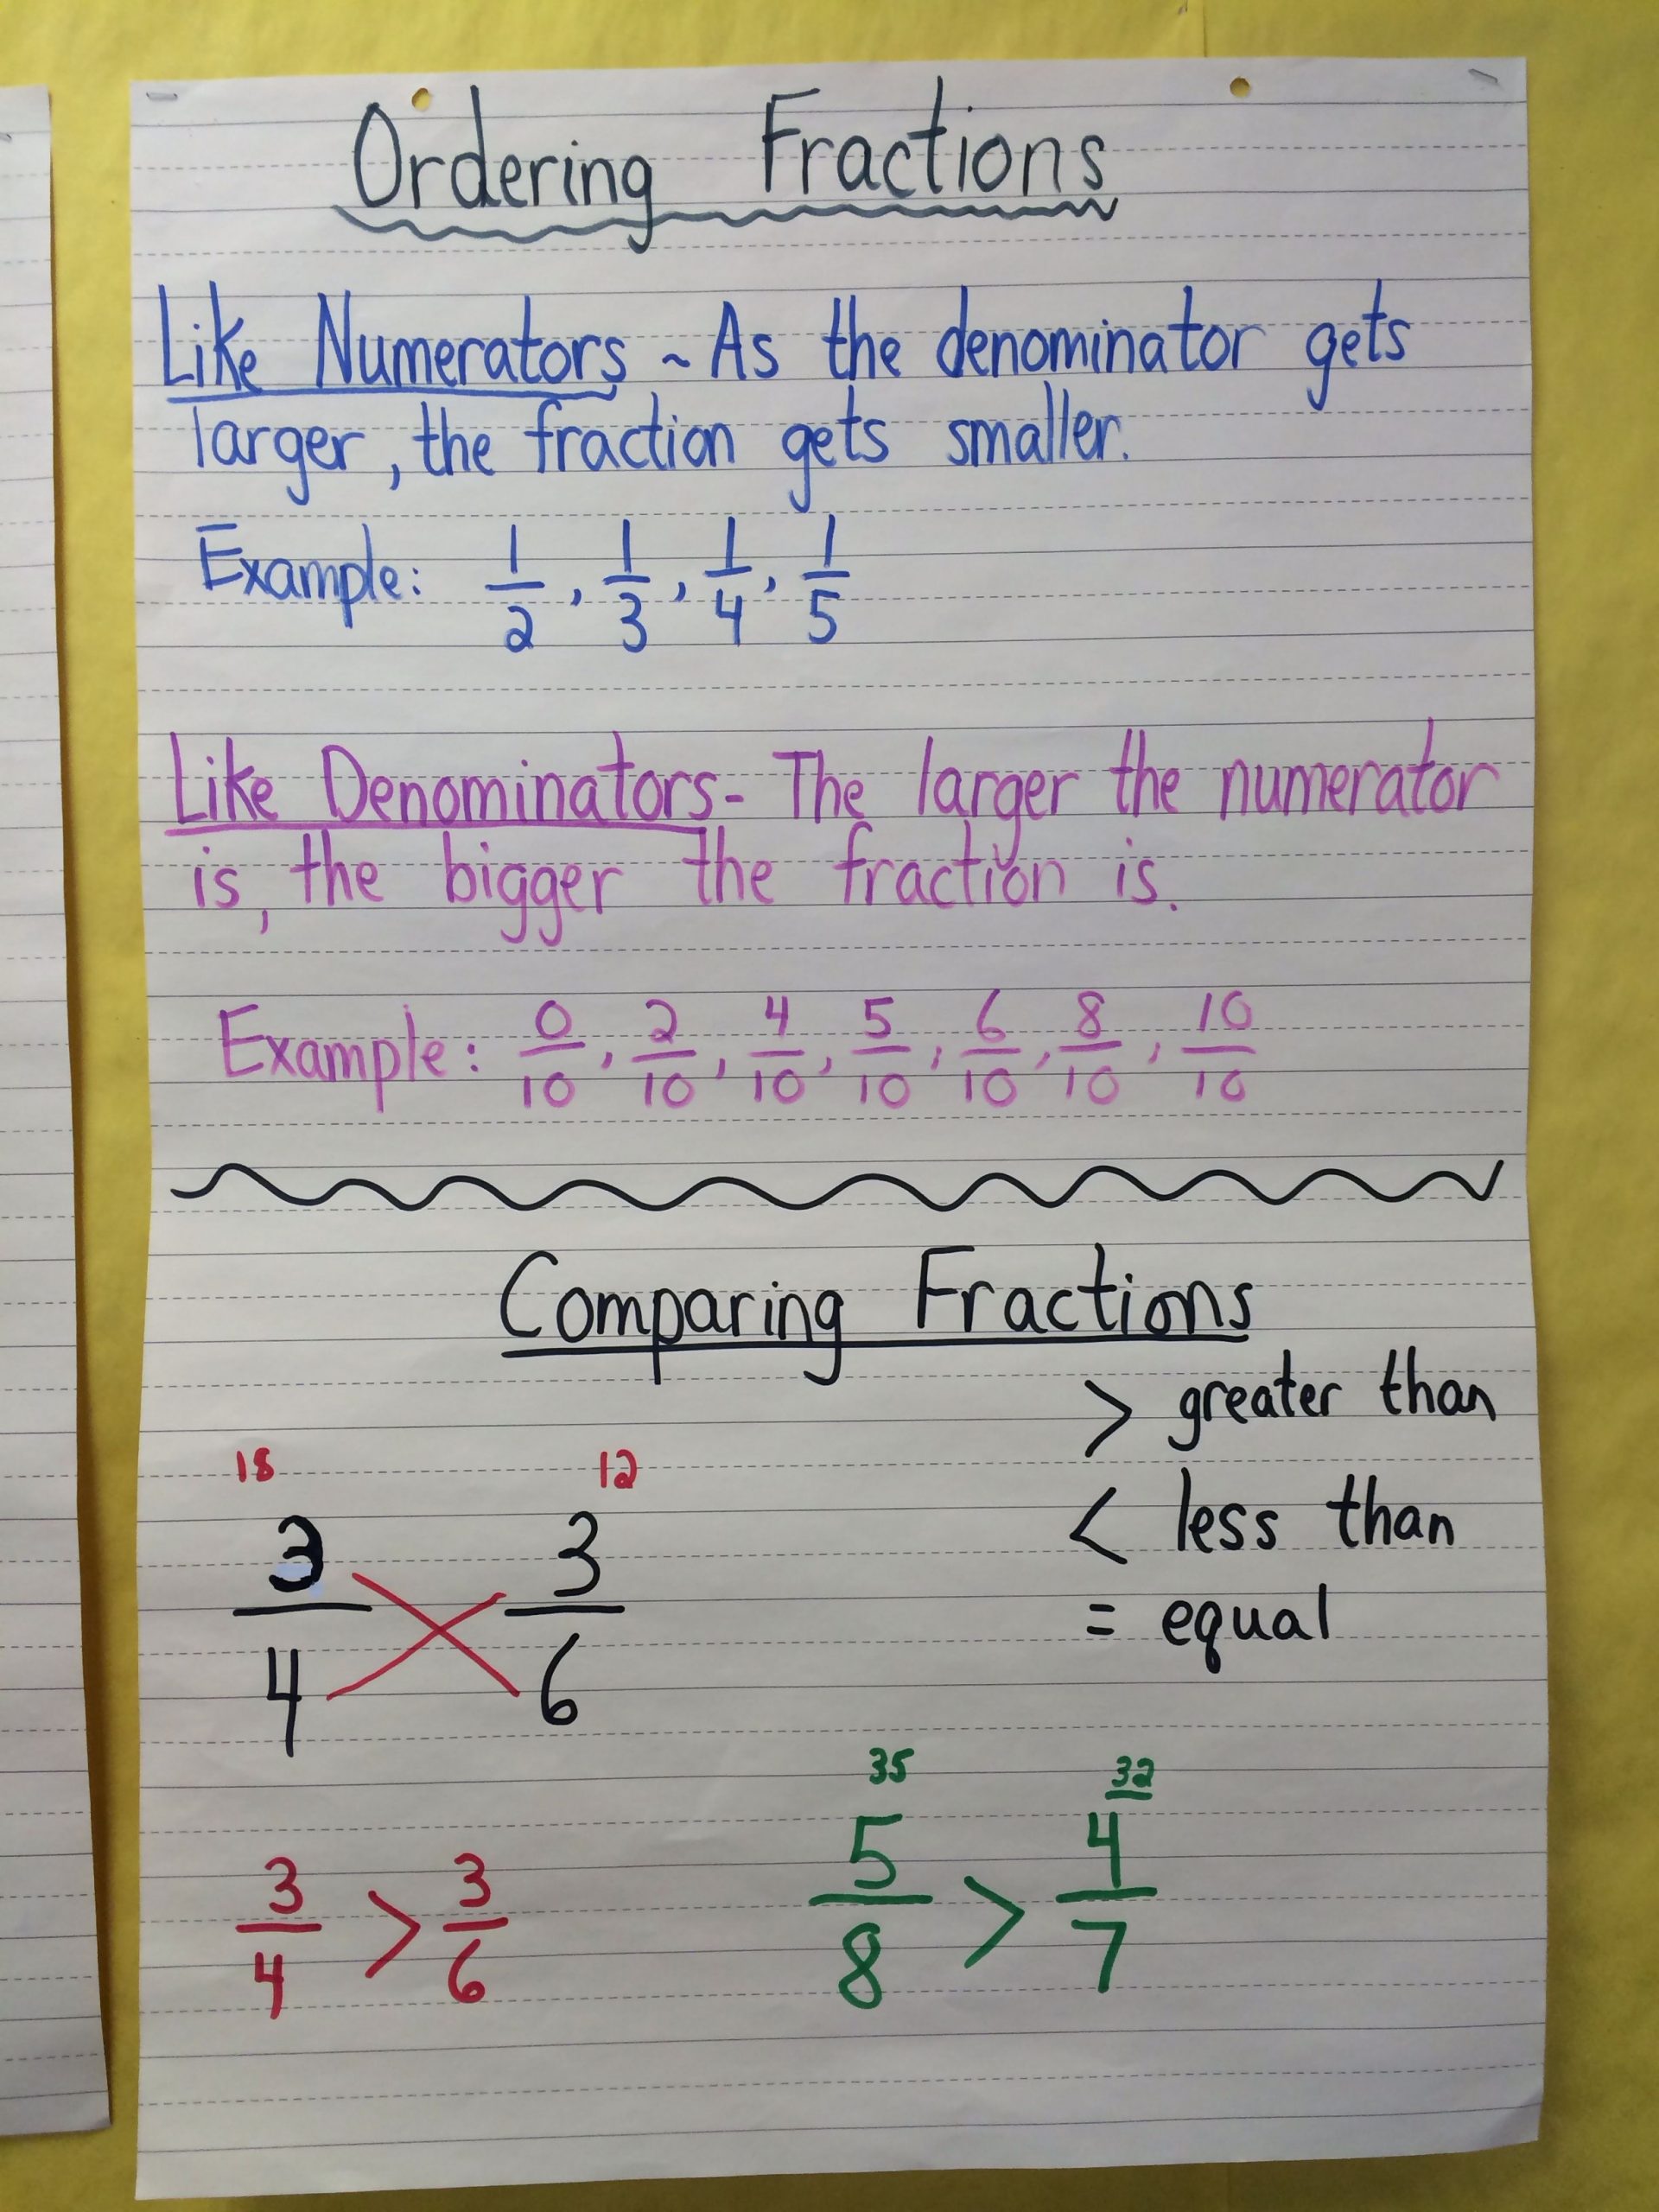 Ordering Fractions
Like Numerators ~ As the denominator gets
larger, the fraction gets smaller.
Example: 1/2, 1/3, 1/4, 1/5
Like Denominators- The larger the numerator
is, the bigger the fraction is.
Example: 0/10, 2/10, 4/10, 5/10, 6/10, 8/10, 10/10
Comparing Fractions
> greater than
< less than
= equal
18 12
3/4 3/6
35 32
3/4 > 3/6
5/8 > 4/7